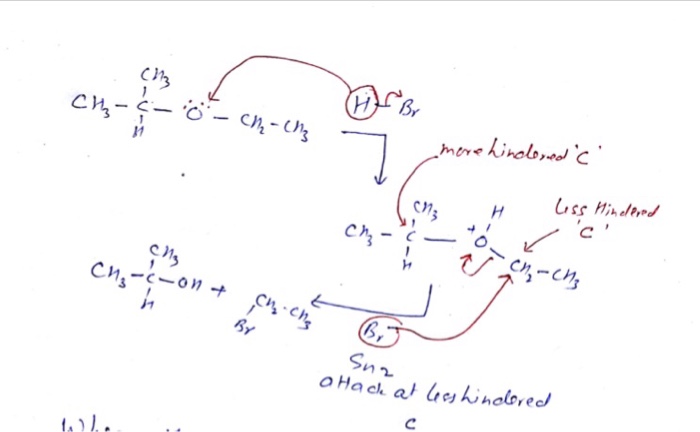 CH3
CH3 - C - :Ö: - CH2 - CH3
H
H Br
more hindered 'C'
Less Hindered
'C'
CH3 H
CH3 - C - +O
H
CH2 - CH3
CH3
CH3 - C - OH + CH2 · CH3
H Br
Br-
Sn2
attack at less hindered
C